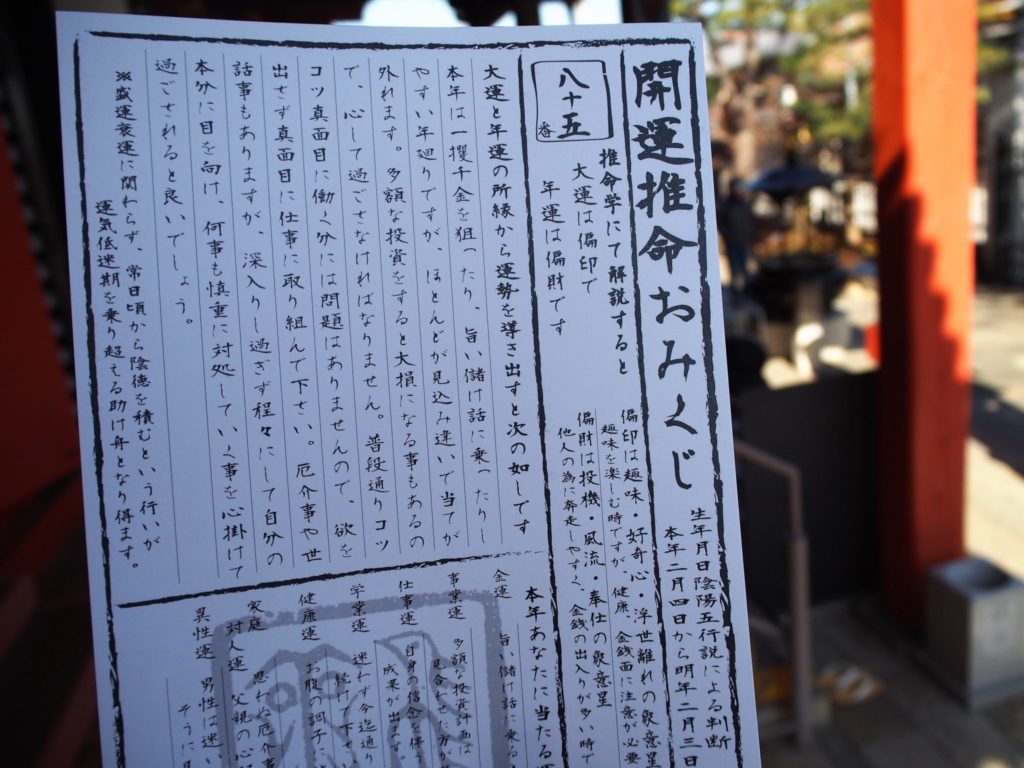 開運推命おみくじ
生年月日陰陽五行説による判断
本年二月四日から明年二月三日
八十五番
推命学にて解説すると
大運は偏印で
年運は偏財です
偏印は趣味・好奇心・浮世離れの象意星
趣味を楽しむ時ですが、健康、金銭面に注意が必要
偏財は投機・風流・奉仕の象意星
他人の為に奔走しやすく、金銭の出入りが多い時で
大運と年運の所縁から運勢を導き出すと次の如しです
本年は一攫千金を狙ったり、旨い儲け話に乗ったりし
やすい年廻りですが、ほとんどが見込み違いで当てが
外れます。多額な投資をすると大損になる事もあるの
で、心して過ごさなければなりません。普段通りコツ
コツ真面目に働く分には問題はありませんので、欲を
出さず真面目に仕事に取り組んで下さい。厄介事や世
話事もありますが、深入りし過ぎず程々にして自分の
本分に目を向け、何事も慎重に対処していく事を心掛けて
過ごされると良いでしょう。
※盛運衰運に関わらず、常日頃から陰徳を積むという行いが
運気低迷期を乗り超える助け舟となり得ます。
本年あなたに当たる
金運 旨い儲け話に乗る
事業運 多額な投資計画は
見合わせた方が
仕事運 自身の信念を伴う
成果が出ます
学業運 迷わず今迄通り
続けて
健康運 お腹の調子に
家庭 思わぬ厄介事
対人運 父親の心配
異性運 男性は迷い
そうに見